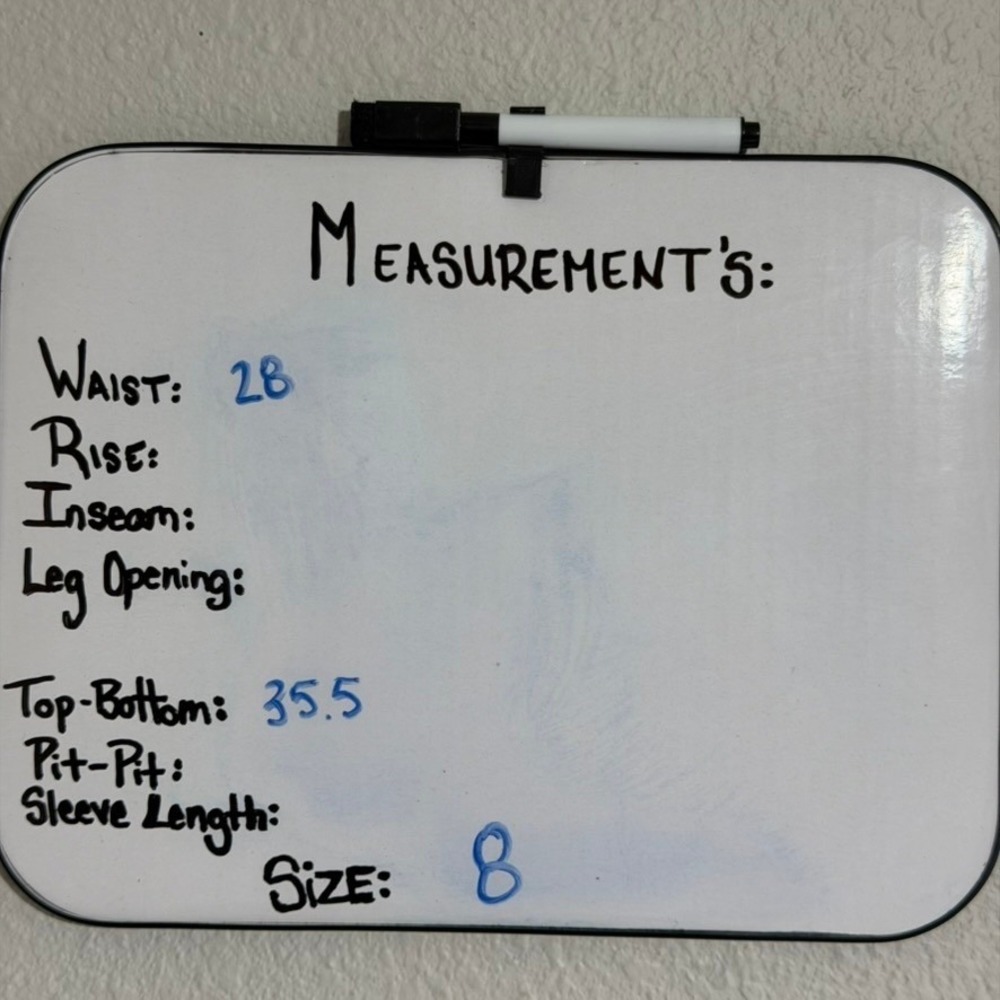 MEASUREMENT'S:
WAIST: 28
RISE:
Inseam:
Leg Opening:
Top-Bottom: 35.5
Pit-Pit:
Sleeve Length:
SiZE: 8